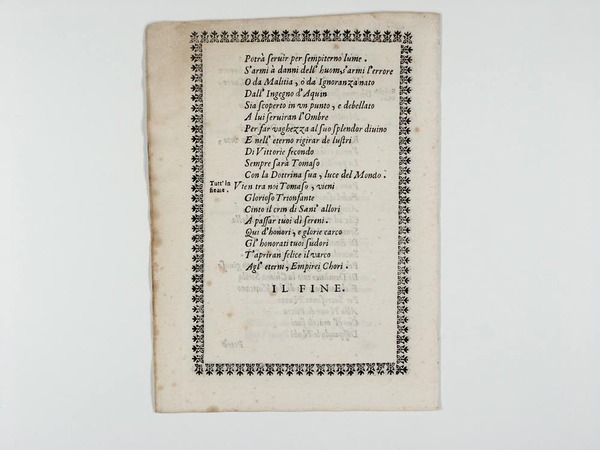 Potrà ſeruir per ſempiterno lume.
S'armi à danni dell' huom, s'armi l'errore
O da Malitia, ò da Ignoranza nato
Dall' Ingegno d'Aquin
Sia ſcoperto in vn punto, e debellato
A lui ſeruiran l'Ombre
Per far vaghezza al ſuo ſplendor diuino
E nell' eterno rigirar de luſtri
Di Vittorie fecondo
Sempre ſarà Tomaſo
Con la Dottrina ſua, luce del Mondo.
Tutt' in
ſieme.
Vien tra noi Tomaſo, vieni
Glorioſo Trionfante
Cinto il crin di Sant' allori
A paſſar tuoi dì ſereni.
Qui d'honori, e glorie carco
Gl' honorati tuoi ſudori
T'apriran felice il varco
Agl' eterni, Empirei Chori.
IL FINE.